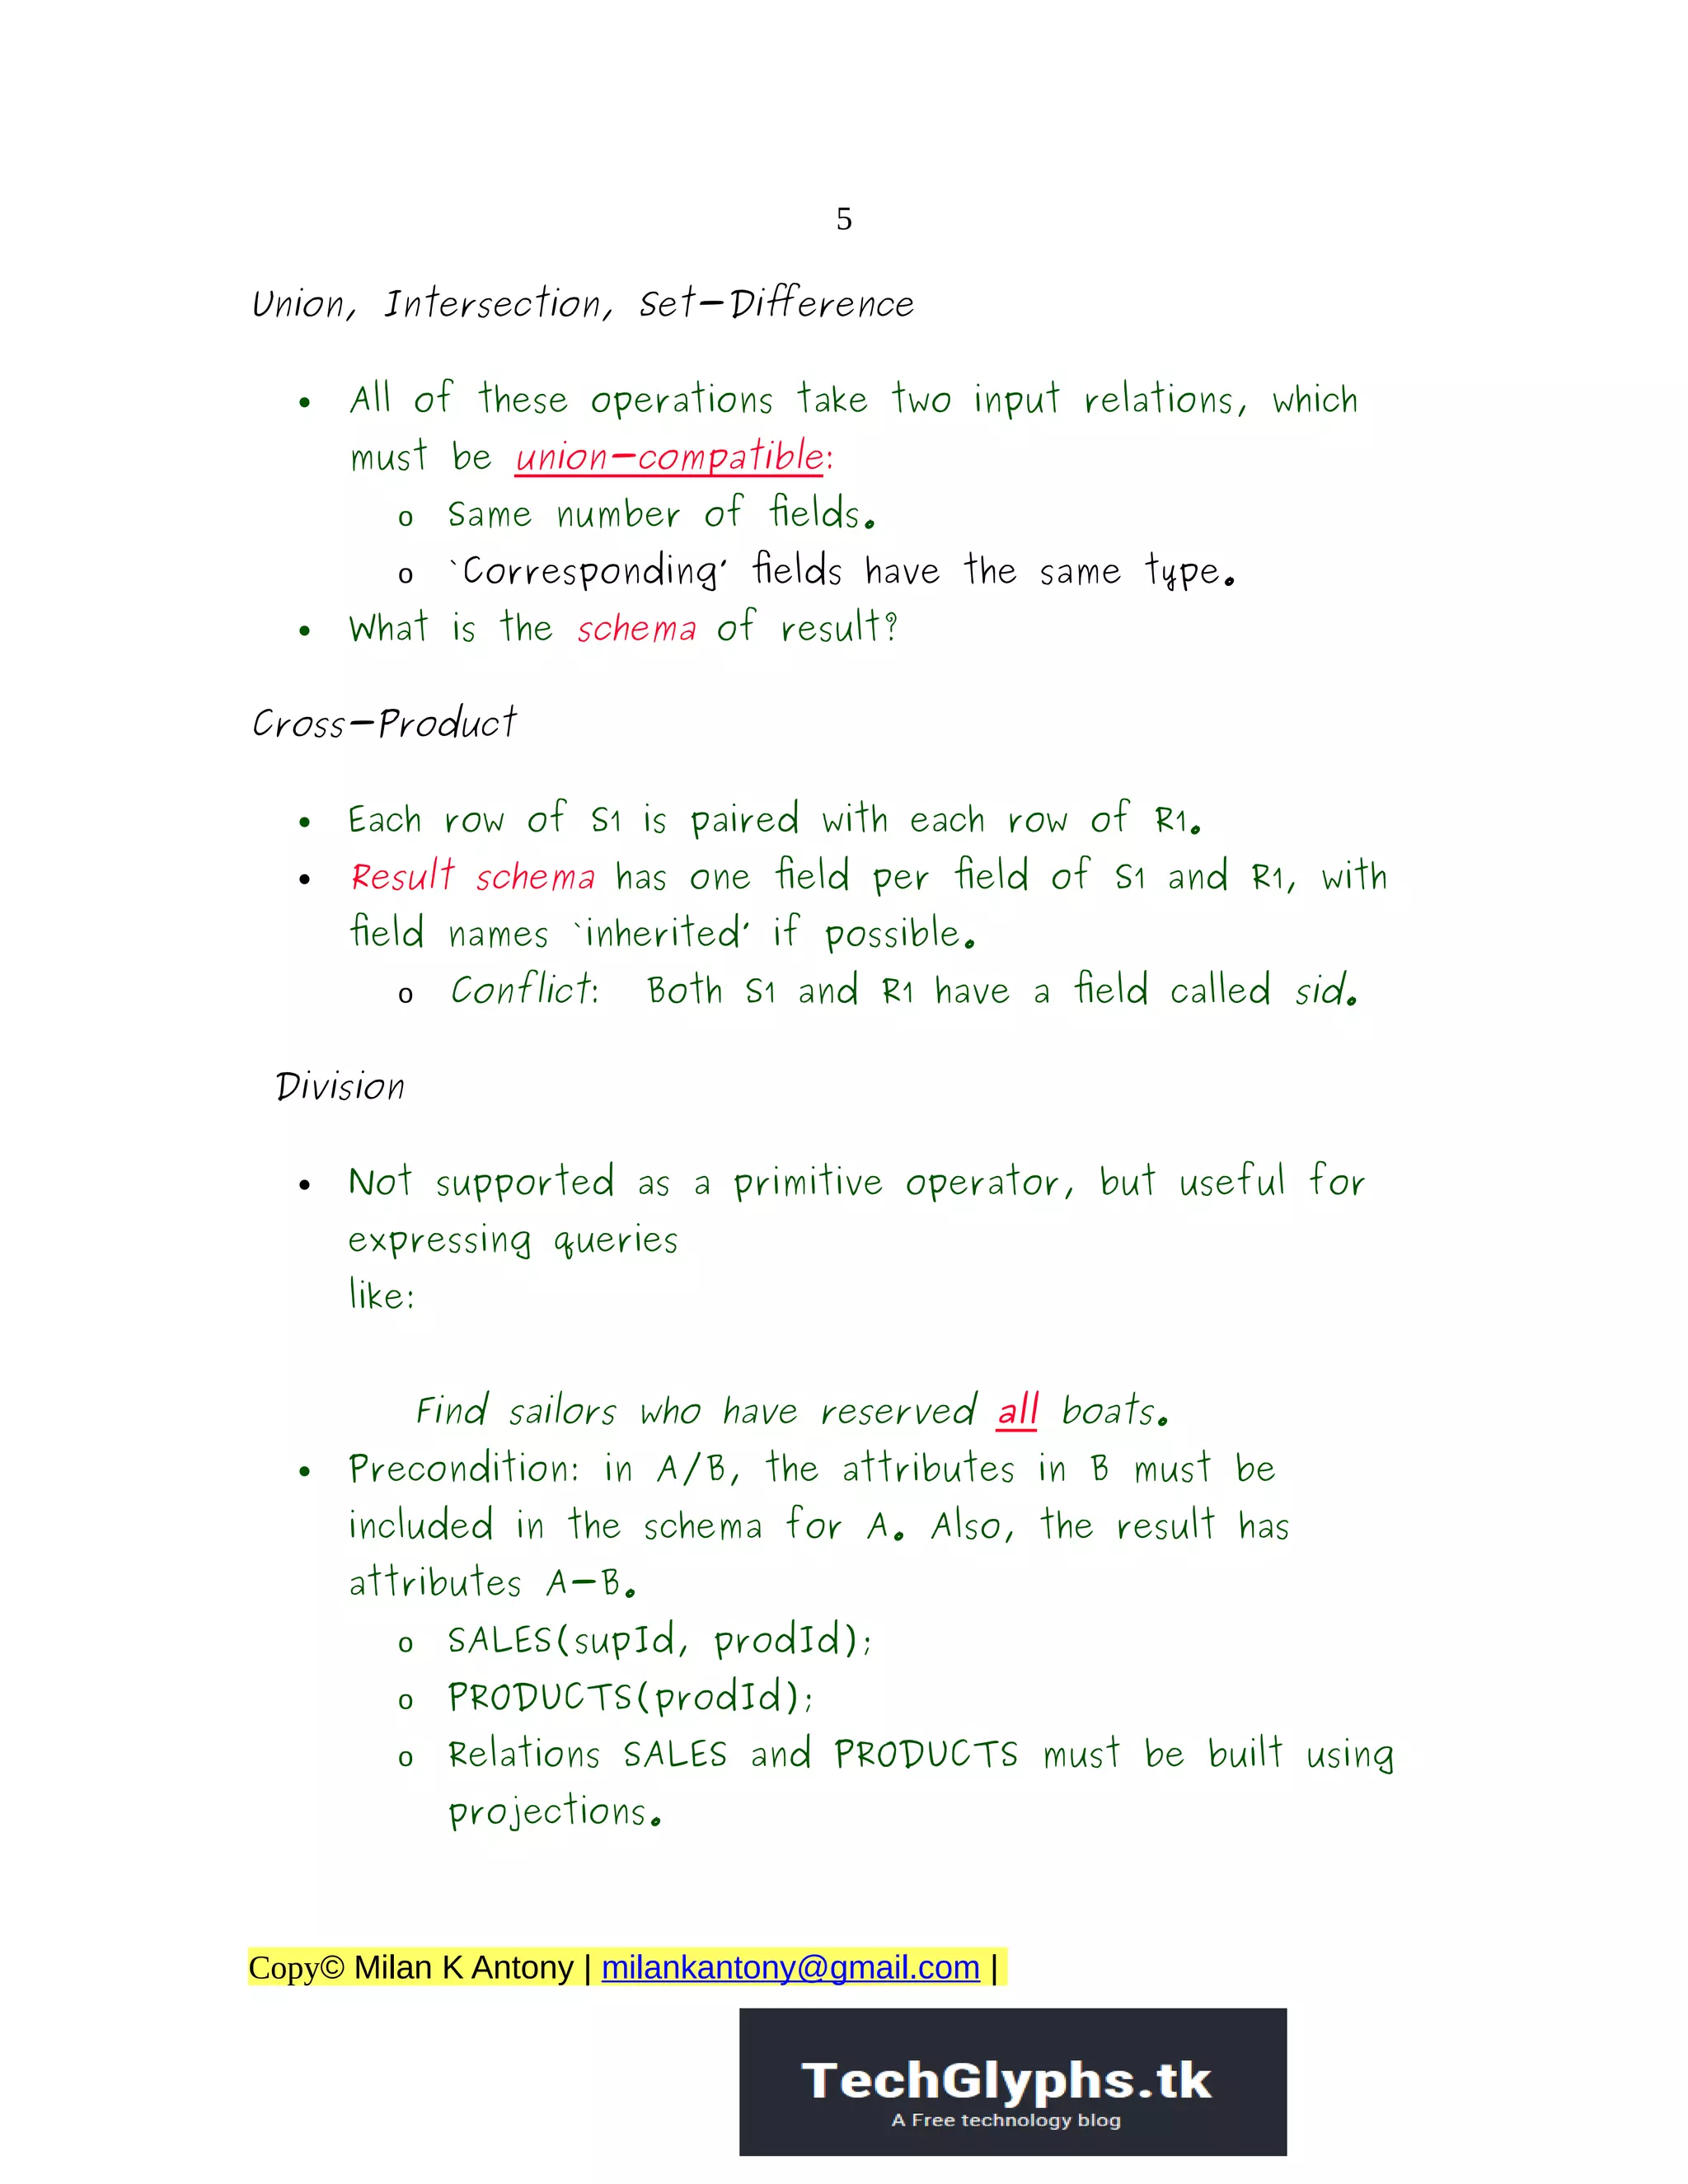 5
Union, Intersection, Set-Difference
• All of these operations take two input relations, which
must be union-compatible:
o Same number of fields.
o `Corresponding’ fields have the same type.
• What is the schema of result?
Cross-Product
• Each row of S1 is paired with each row of R1.
• Result schema has one field per field of S1 and R1, with
field names `inherited’ if possible.
o Conflict: Both S1 and R1 have a field called sid.
Division
• Not supported as a primitive operator, but useful for
expressing queries
like:
Find sailors who have reserved all boats.
• Precondition: in A/B, the attributes in B must be
included in the schema for A. Also, the result has
attributes A-B.
o SALES(supId, prodId);
o PRODUCTS(prodId);
o Relations SALES and PRODUCTS must be built using
projections.
Copy© Milan K Antony | milankantony@gmail.com |
TechGlyphs.tk
A Free technology blog